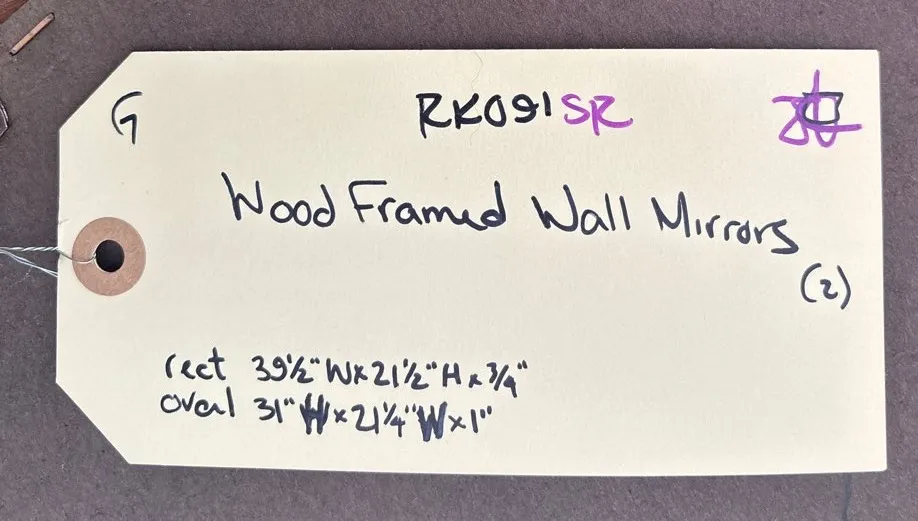 G RK091SR
Wood Framed Wall Mirrors
(2)
rect 39½" W x 21½" H x ¾"
oval 31" H x 21¼" W x 1"